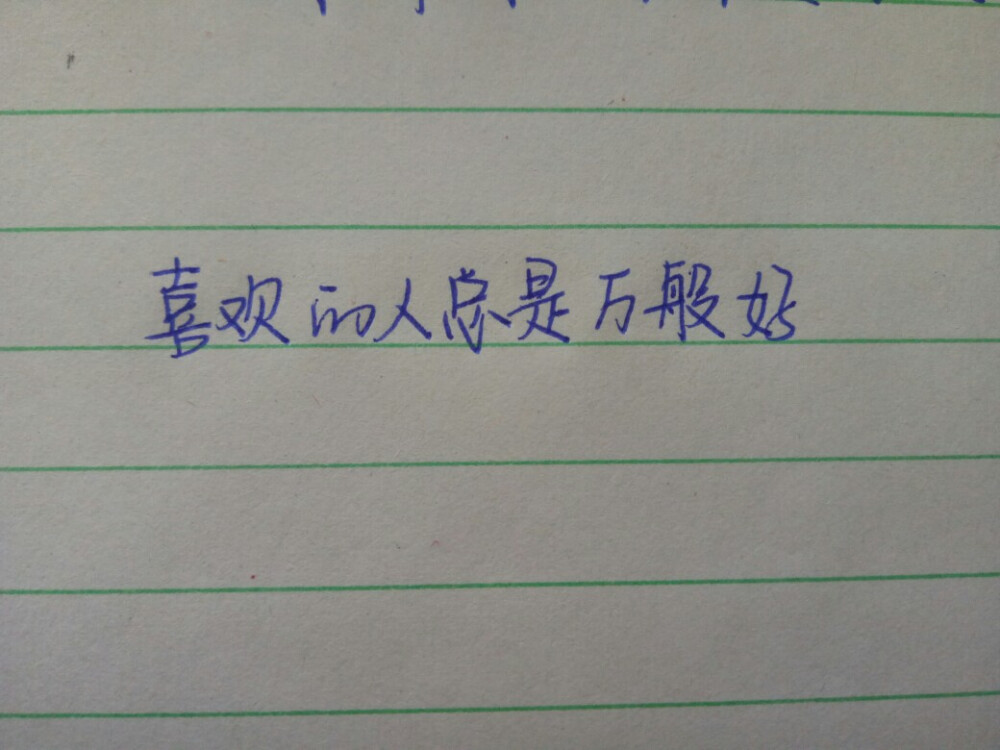 喜欢的人总是万般好